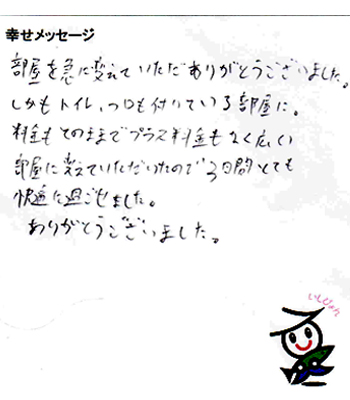 幸せメッセージ
部屋を急に変えていただありがとうございました。
しかもトイレ、つ口も付いている部屋に。
料金もそのままでプラス料金もなく広い
部屋に変えていただいたので3日間とても
快適に過ごせました。
ありがとうございました。